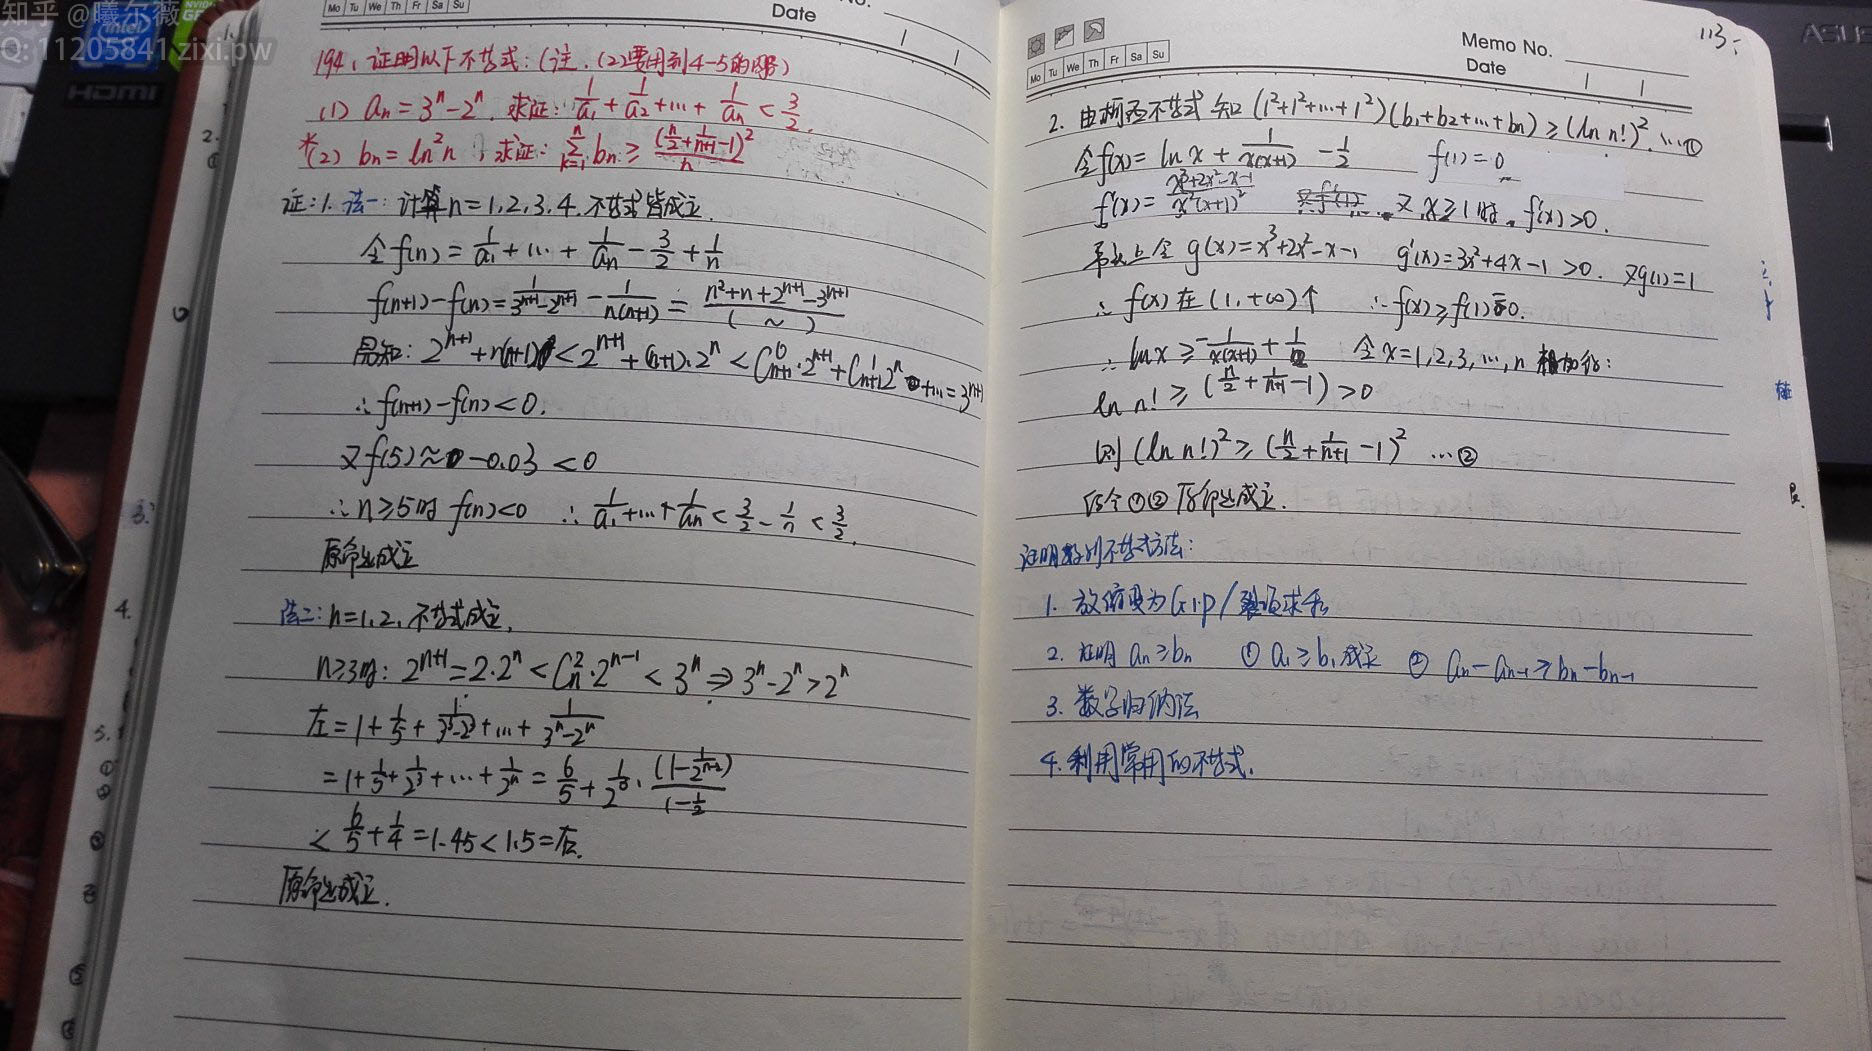 知乎 @曦尔薇
Q: 11205841 zixi.pw
intel
HDMI
ASUS
Mo Tu We Th Fr Sa Su
Date
194、证明以下不等式：(注：(2)要用到4-5的内容)
(1) aₙ=3ⁿ-2ⁿ，求证：1/a₁+1/a₂+…+1/aₙ<3/2.
*(2) bₙ=ln²n，求证：∑ₖ₌₁ⁿ bₙ≥(n/2+1/(n+1)-1)²/n
证：1. 法一：计算n=1,2,3,4.不等式皆成立.
令f(n)=1/a₁+…+1/aₙ-3/2+1/n
f(n+1)-f(n)=1/(3ⁿ⁺¹-2ⁿ⁺¹)-1/(n(n+1))=(n²+n+2ⁿ⁺¹-3ⁿ⁺¹)/(~)
易知：2ⁿ⁺¹+n(n+1)<2ⁿ⁺¹+(n+1)·2ⁿ<C⁰ₙ₊₁·2ⁿ⁺¹+C¹ₙ₊₁2ⁿ+…=3ⁿ⁺¹
∴f(n+1)-f(n)<0.
又f(5)≈-0.03<0
∴n≥5时 f(n)<0 ∴1/a₁+…+1/aₙ<3/2-1/n<3/2.
原命题成立
法二：n=1,2,不等式成立,
n≥3时：2ⁿ⁺¹=2·2ⁿ<C²ₙ·2ⁿ⁻¹<3ⁿ⇒3ⁿ-2ⁿ>2ⁿ
左=1+1/5+1/(3³-2³)+…+1/(3ⁿ-2ⁿ)
=1+1/5+1/2³+…+1/2ⁿ=6/5+1/2³·(1-1/2ⁿ⁻²)/(1-1/2)
<6/5+1/4=1.45<1.5=右.
原命题成立.
Mo Tu We Th Fr Sa Su
Memo No.
Date
113
2. 由柯西不等式知(1²+1²+…+1²)(b₁+b₂+…+bₙ)≥(ln n!)².…①
令f(x)=ln x+1/(x(x+1))-1/2 f(1)=0
f'(x)=(x³+2x²-x-1)/(x²(x+1)²) 又x≥1时,f'(x)>0.
事实上令g(x)=x³+2x²-x-1 g'(x)=3x²+4x-1>0. 又g(1)=1
∴f(x)在(1,+∞)↑ ∴f(x)≥f(1)=0.
∴ln x≥-1/(x(x+1))+1/2 令x=1,2,3,…,n 相加得：
ln n!≥(n/2+1/(n+1)-1)>0
则(ln n!)²≥(n/2+1/(n+1)-1)² …②
结合①②原命题成立.
证明数列不等式方法：
1. 放缩变为G.P/裂项求和
2. 证明aₙ≥bₙ ①a₁≥b₁成立 ②aₙ-aₙ₋₁≥bₙ-bₙ₋₁
3. 数学归纳法
4. 利用常用的不等式.